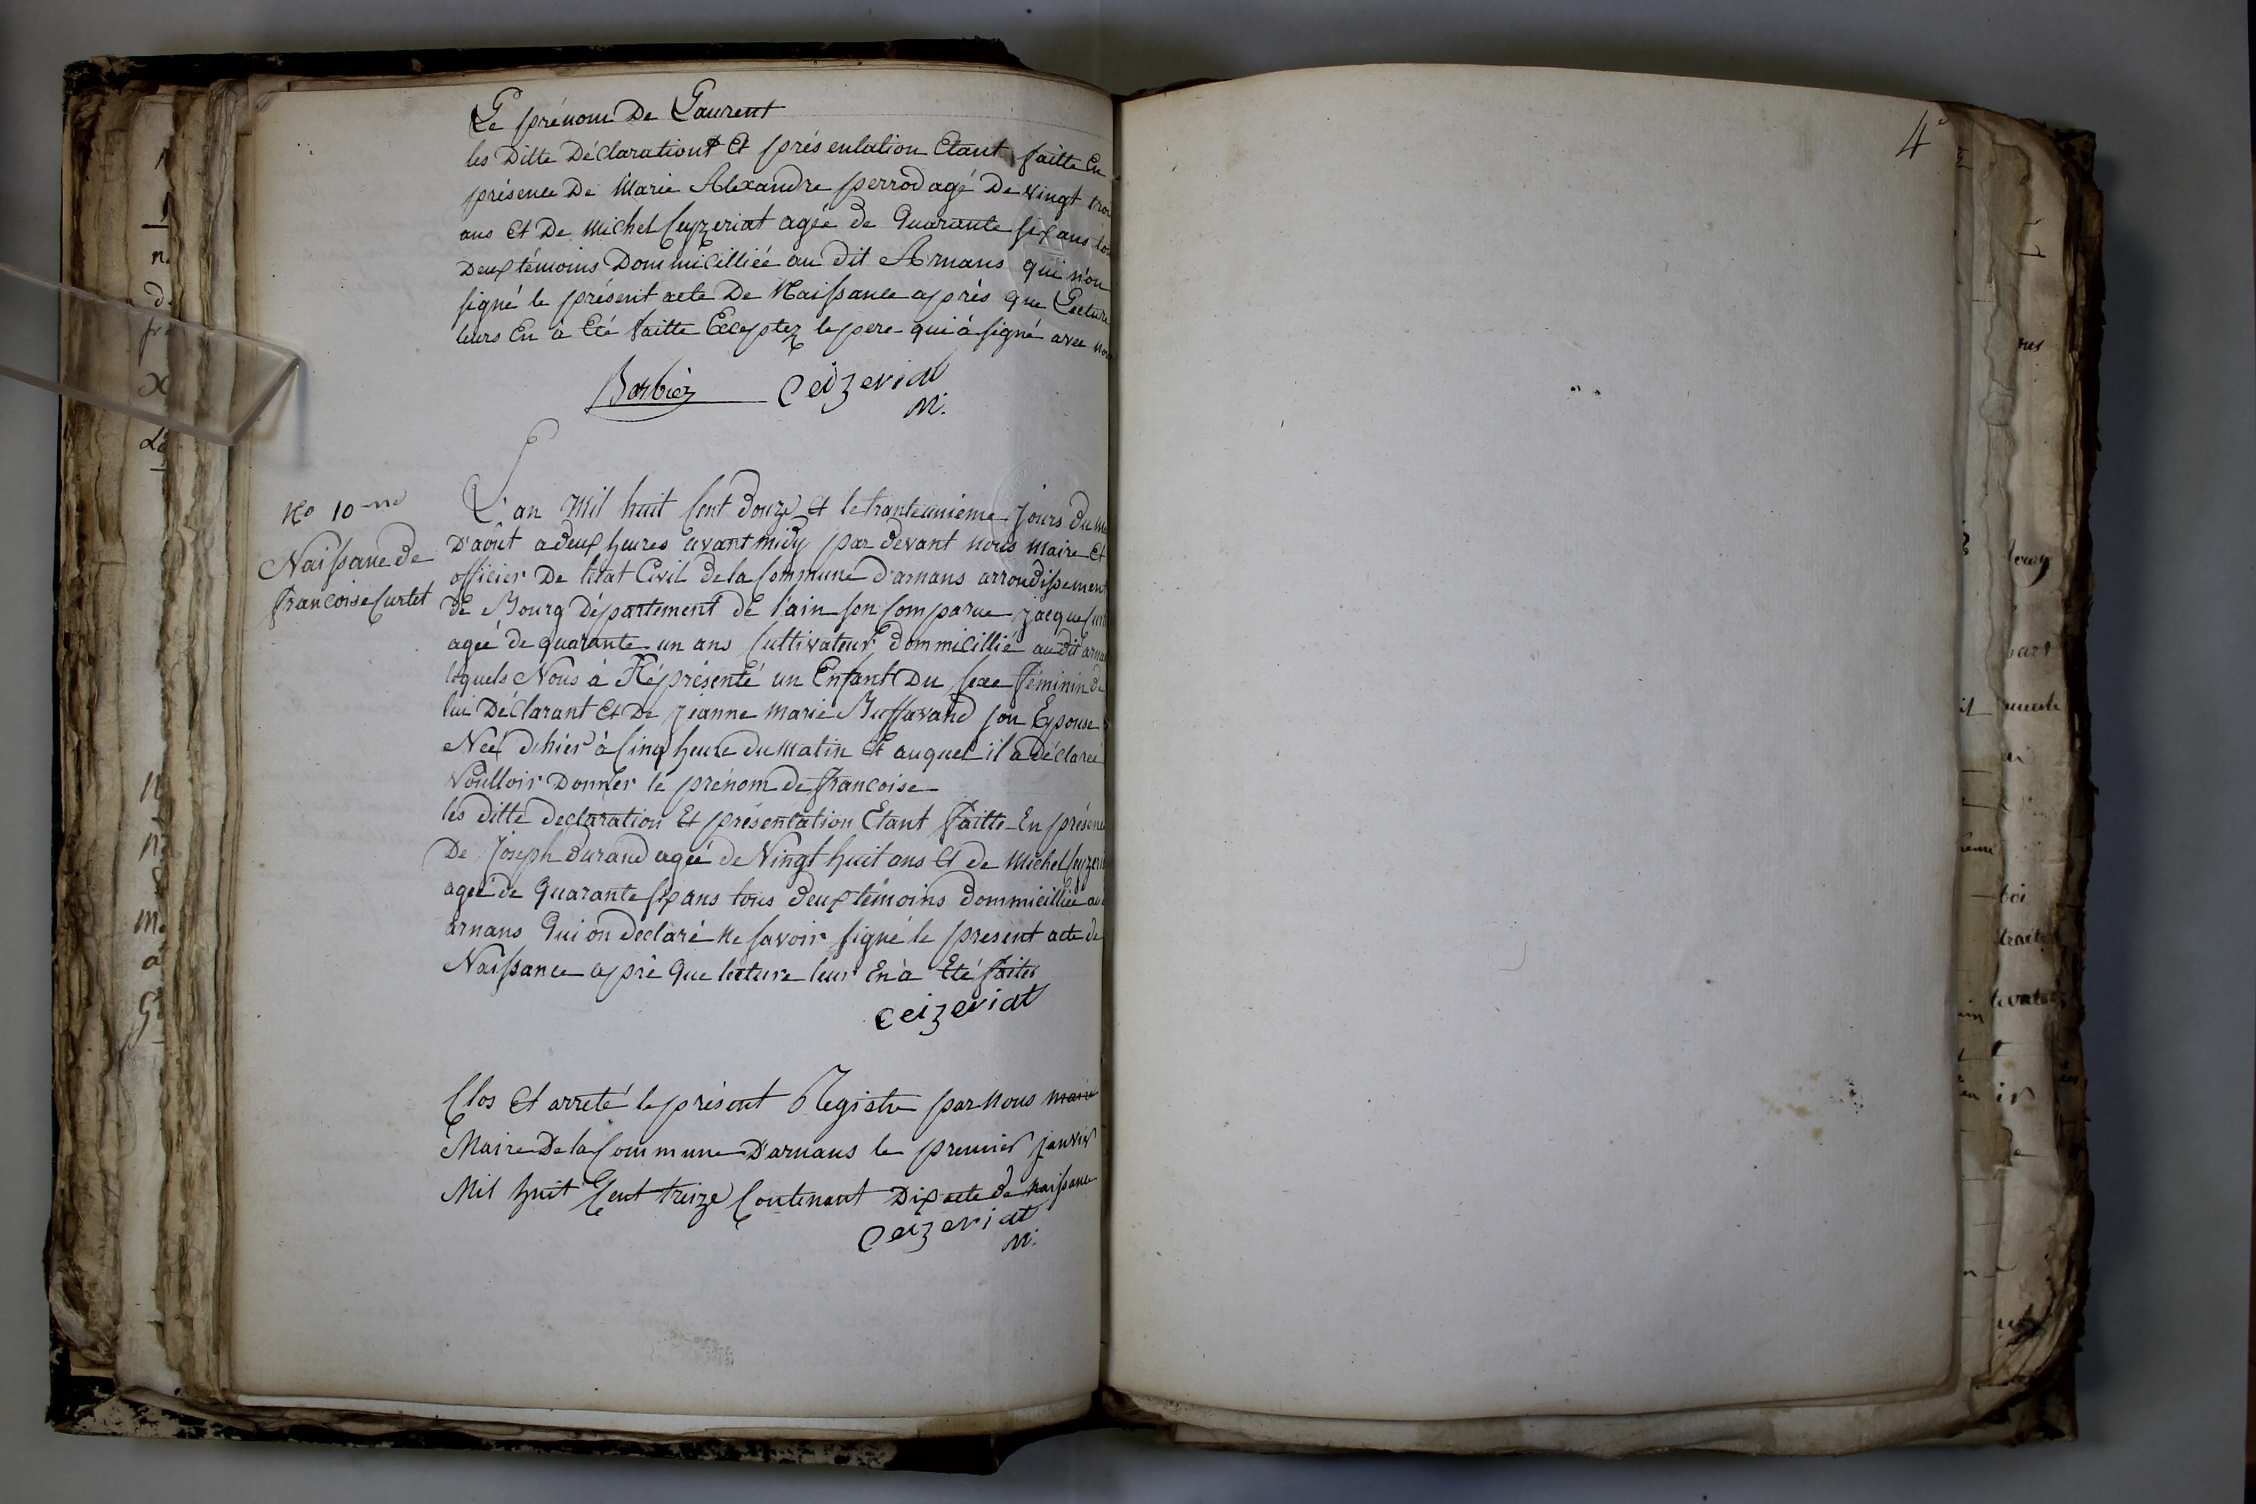 Le prénom De Laurent
les Ditte Déclaration et présentation Etant faitte En
présence De Marie Alexandre perrod agé De vingt trois
ans et De Michel Ceyzeriat agée de Quarante six ans
Deux témoins Dommicilliée au dit Arnans qui n'on
signé le présent acte De Naissance après que Lecture
leurs En à Eté faitte Exceptez le pere qui à signé avec nous
Barbier Ceizeriat
M.
No 10 me
Naissance de
francoise Curtet
L'an Mil huit Cent Douze et le tranteunième jours du
D'août a deux heures avant midy par devant Nous maire et
officier De l'état Civil de la Commune d'arnans arrondissement
de Bourg Département de l'ain son Comparue jacque
ageé de quarante un ans Cultivateur Dommicillié au dit
lequels Nous à Réprésenté un Enfant Du sexe féminin de
lui Déclarant et De jeanne Marie Buffavand son Epouse
Neé d'hièr à Cinq heure du matin et auquel il a Déclareé
Voulloir Donner le prénom de francoise
les ditte declaration Et présentation Etant faitte En présence
De Joseph durand ageé de Vingt huit ans et de Michel
ageé de Quarante six ans tous deux témoins dommicilliée
arnans Qui on declaré ne savoir signé le présent acte de
Naissance aprè Que lecture leur En à Eté faites
Ceizeriat
Clos et arreté le présent Registre par Nous maire
Maire De la Commune D'arnans le premier janvier
Mil huit Cent treize Contenant Dix acte de naissance
Ceizeriat
M.
4e